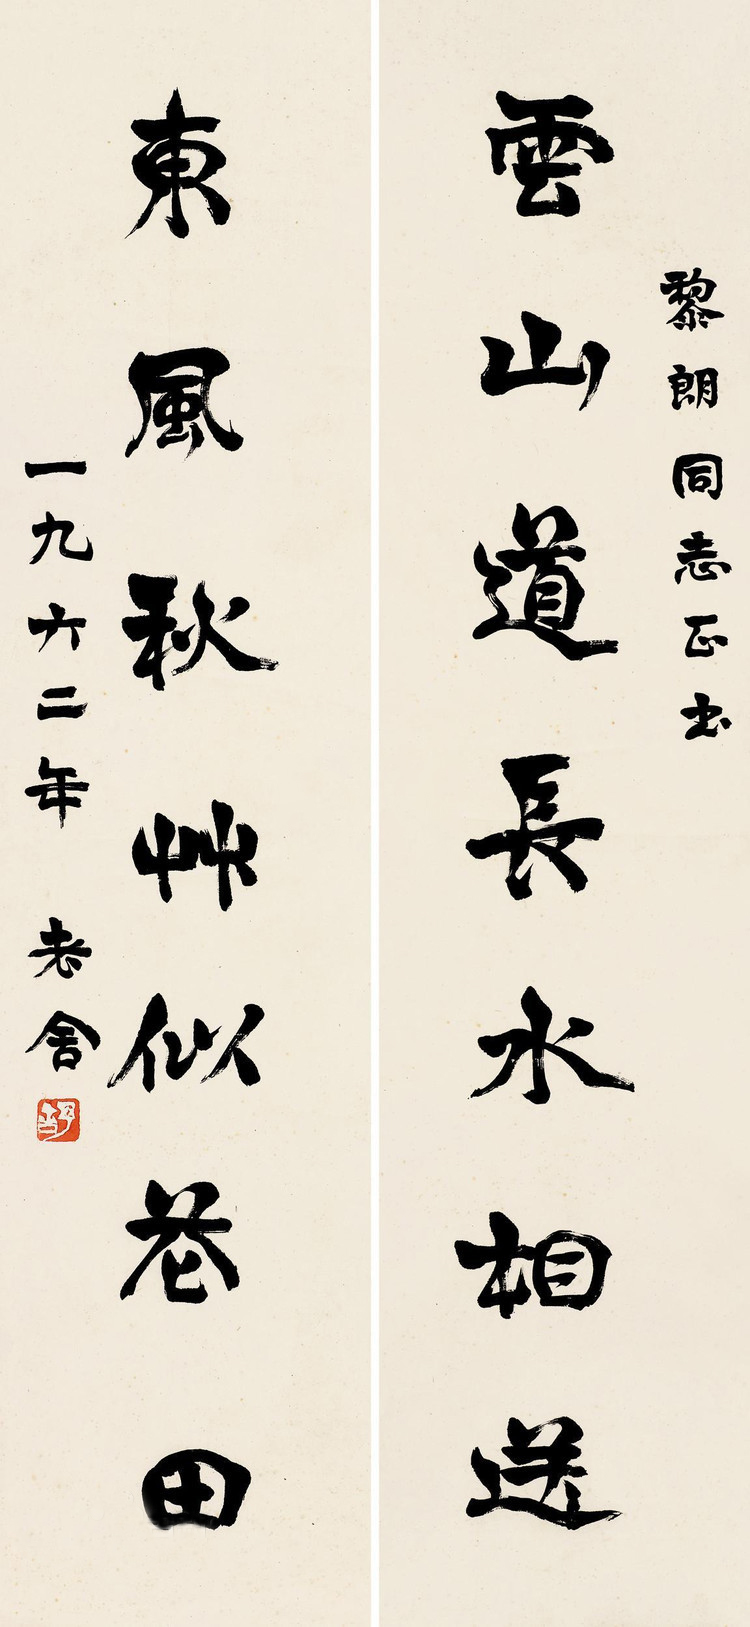 黎朗同志正书
雲山道長水相送
東風秋艸似田
一九六二年 老舍